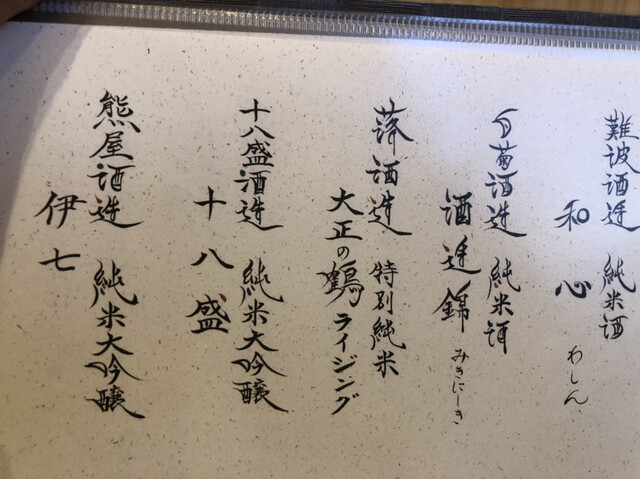 難波酒造 純米酒
和心 わしん
白菊酒造 純米酒
酒造錦 みきにしき
落酒造 特別純米
大正の鶴ライジング
十八盛酒造 純米大吟醸
十八盛
熊屋酒造 純米大吟醸
伊七